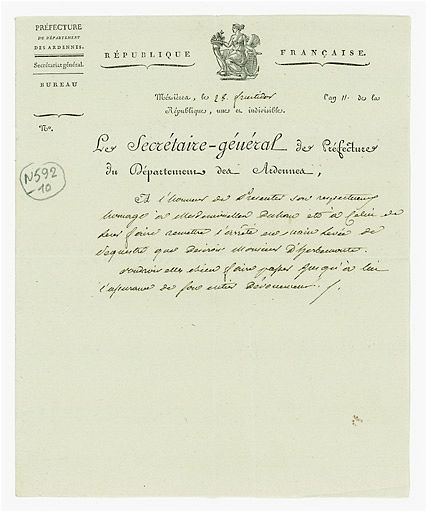 PRÉFECTURE
DU DÉPARTEMENT
DES ARDENNES.
Secrétariat général.
BUREAU
RÉPUBLIQUE FRANÇAISE.
Mézières, le 28 fructidor l'an 11 de la
République, une et indivisible.
N°.
N592
10
Le Secrétaire-général de Préfecture
du Département des Ardennes,
A l'honneur de Présenter son respectueux
homage à Mesdemoiselles et à celui de
leur faire remettre l'arrêté en main levée de
séquestre que désiroit Monsieur D'herbemont.
voudroit elles bien faire passer jusqu'à lui
l'assurance de son entier Dévouement ./.